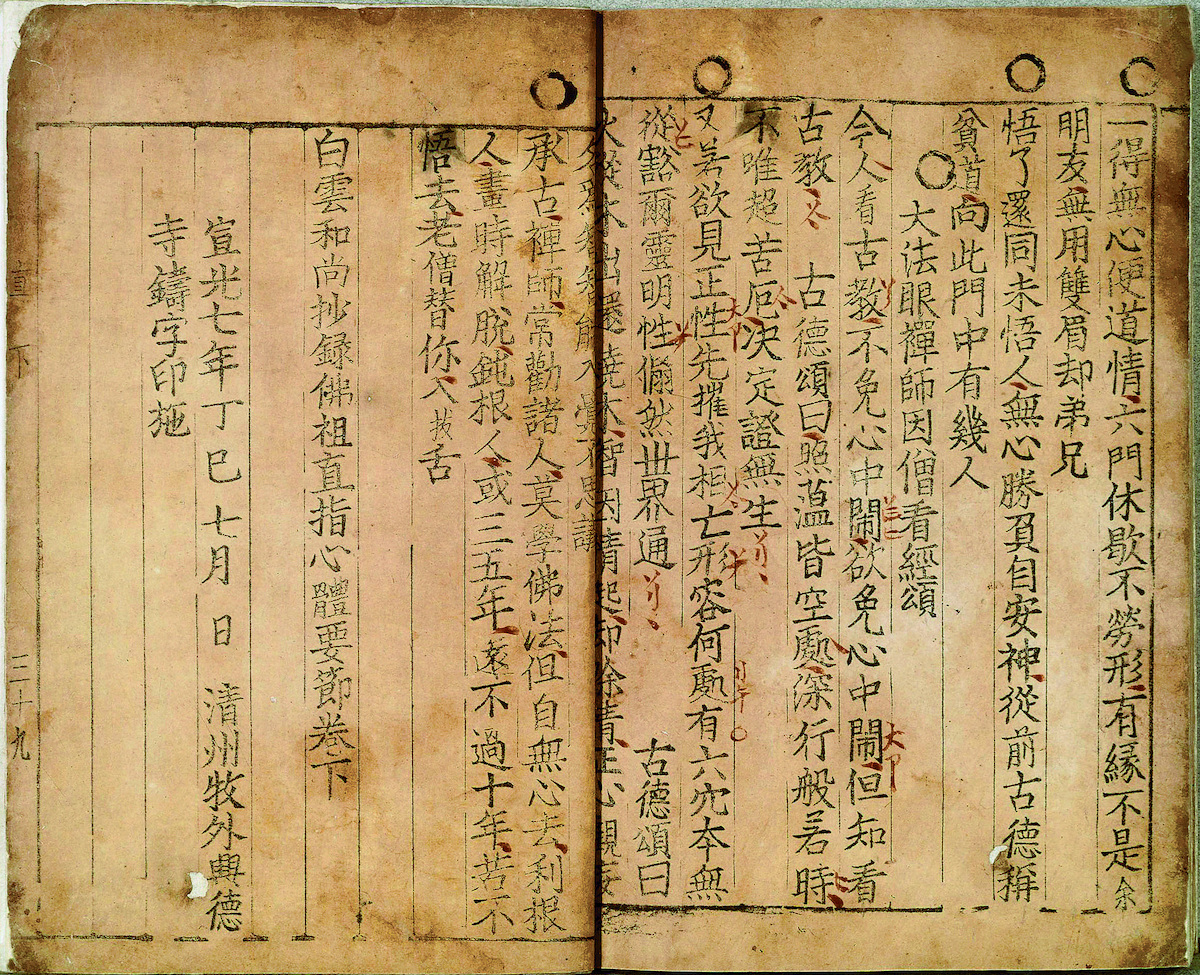 一得無心便道情六門休歇不勞形有縁不是余
明友無用雙眉却弟兄
悟了還同未悟人無心勝負自安神從前古德稱
貧道向此門中有幾人
大法眼禪師因僧看經頌
今人看古教不免心中鬧欲免心中鬧但知看
古教 古德頌曰照蘊皆空處深行般若時
不唯超苦厄决定證無生
又若欲見正性先摧我相亡形容何處有六穴本無
從豁爾靈明性倘然世界通 古德頌曰
火從木出還燒木智因情起却除情
承古禪師常勸諸人莫學佛法但自無心去利根
人畫時解脫鈍根人或三五年遠不過十年若不
悟去老僧替你入拔舌
白雲和尚抄録佛祖直指心體要節卷下
宣光七年丁巳七月 日 清州牧外興德
寺鑄字印施
直下 三十九